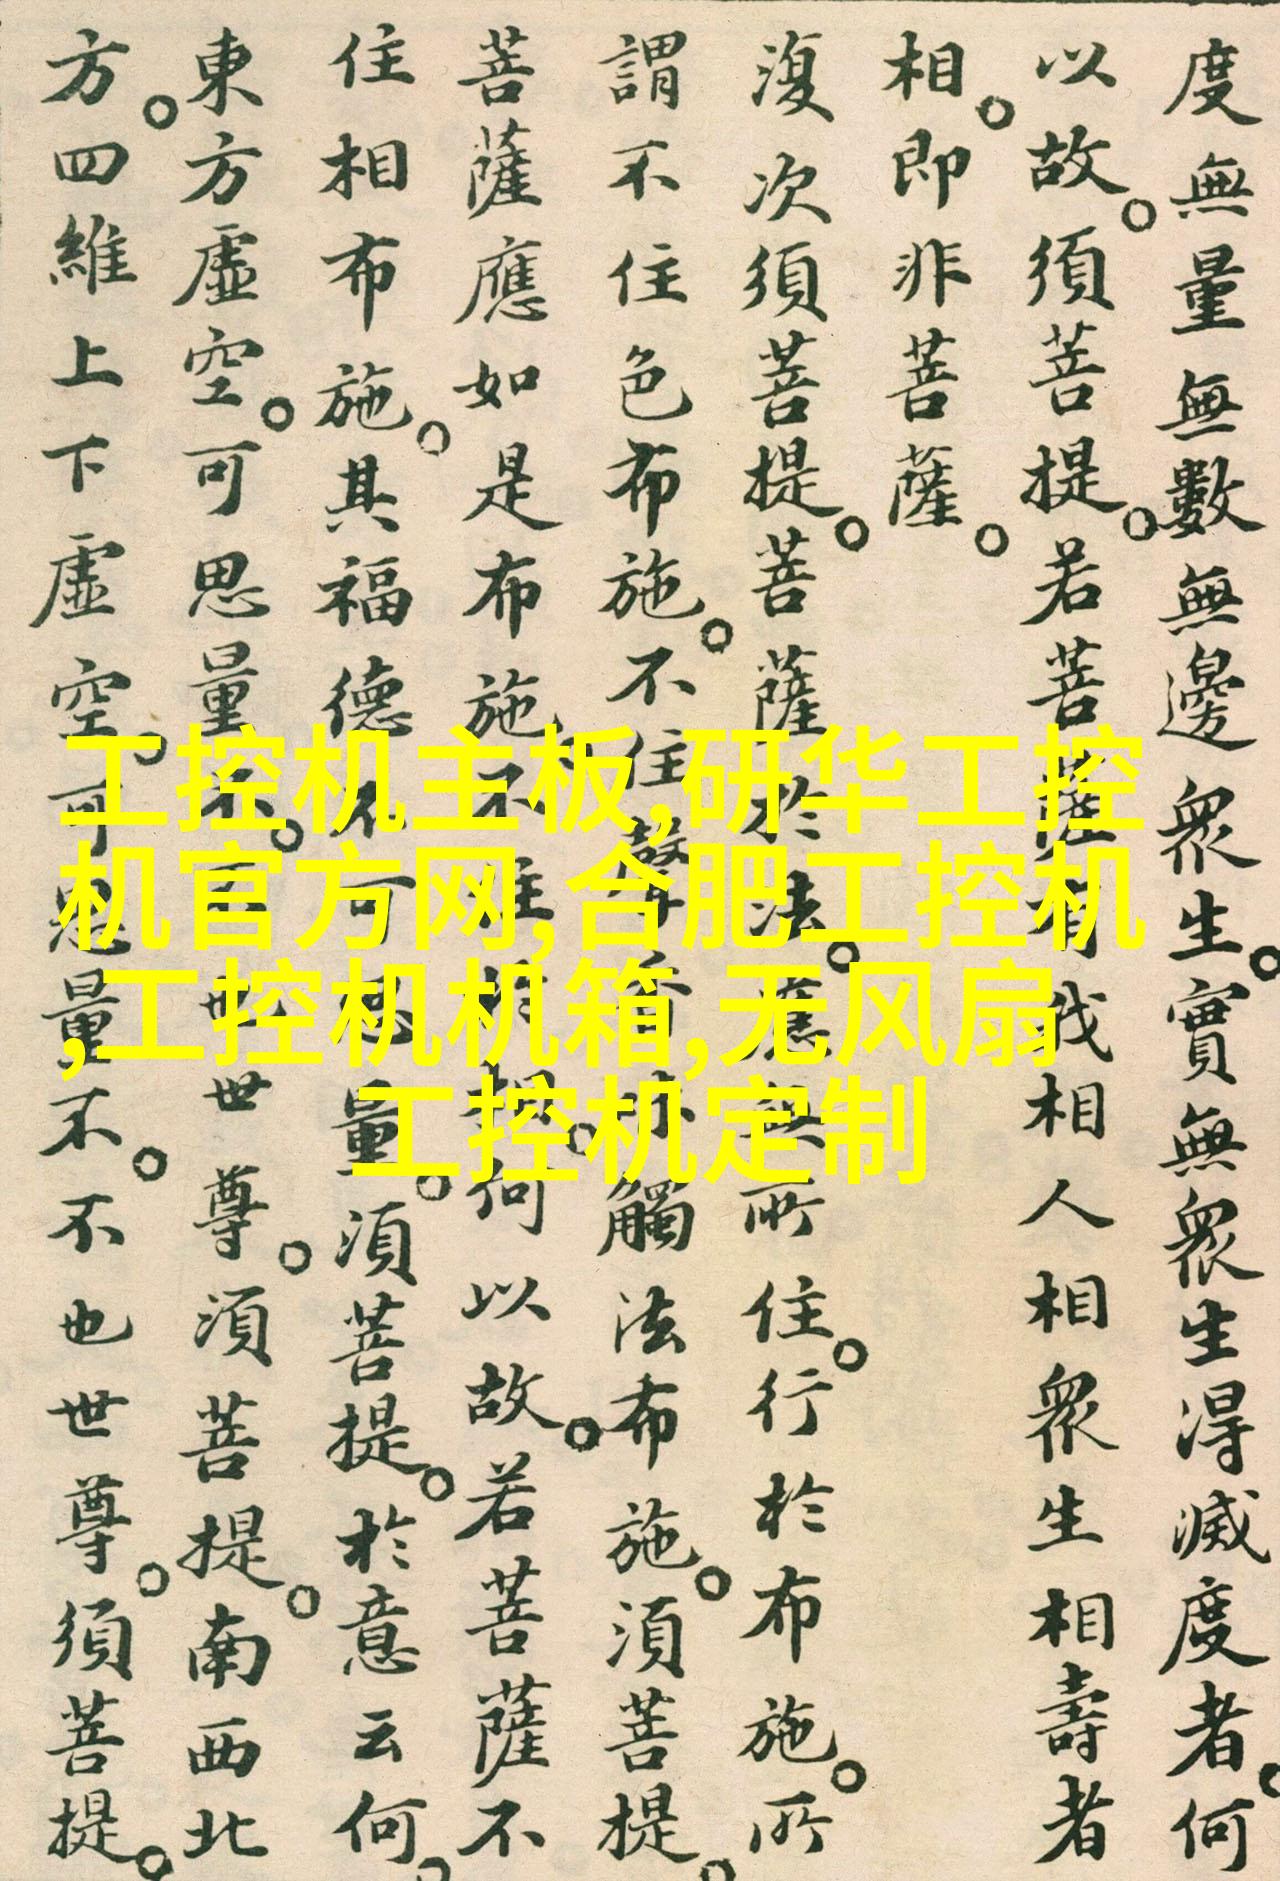 度無量無數無邊眾生。實無眾生得滅度者。何
以故。須菩提。若菩薩有我相人相眾生相壽者
相。即非菩薩。
復次須菩提。菩薩於法。應無所住。行於布施。所
謂不住色布施。不住聲香味觸法布施。須菩提。
菩薩應如是布施。不住於相。何以故。若菩薩不
住相布施。其福德不可思量。須菩提。於意云何。
東方虛空。可思量不。不也世尊。須菩提。南西北
方。四維上下虛空。可思量不。不也世尊。須菩提。
工控机主板,研华工控
机官方网,合肥工控机
,工控机机箱,无风扇
工控机定制